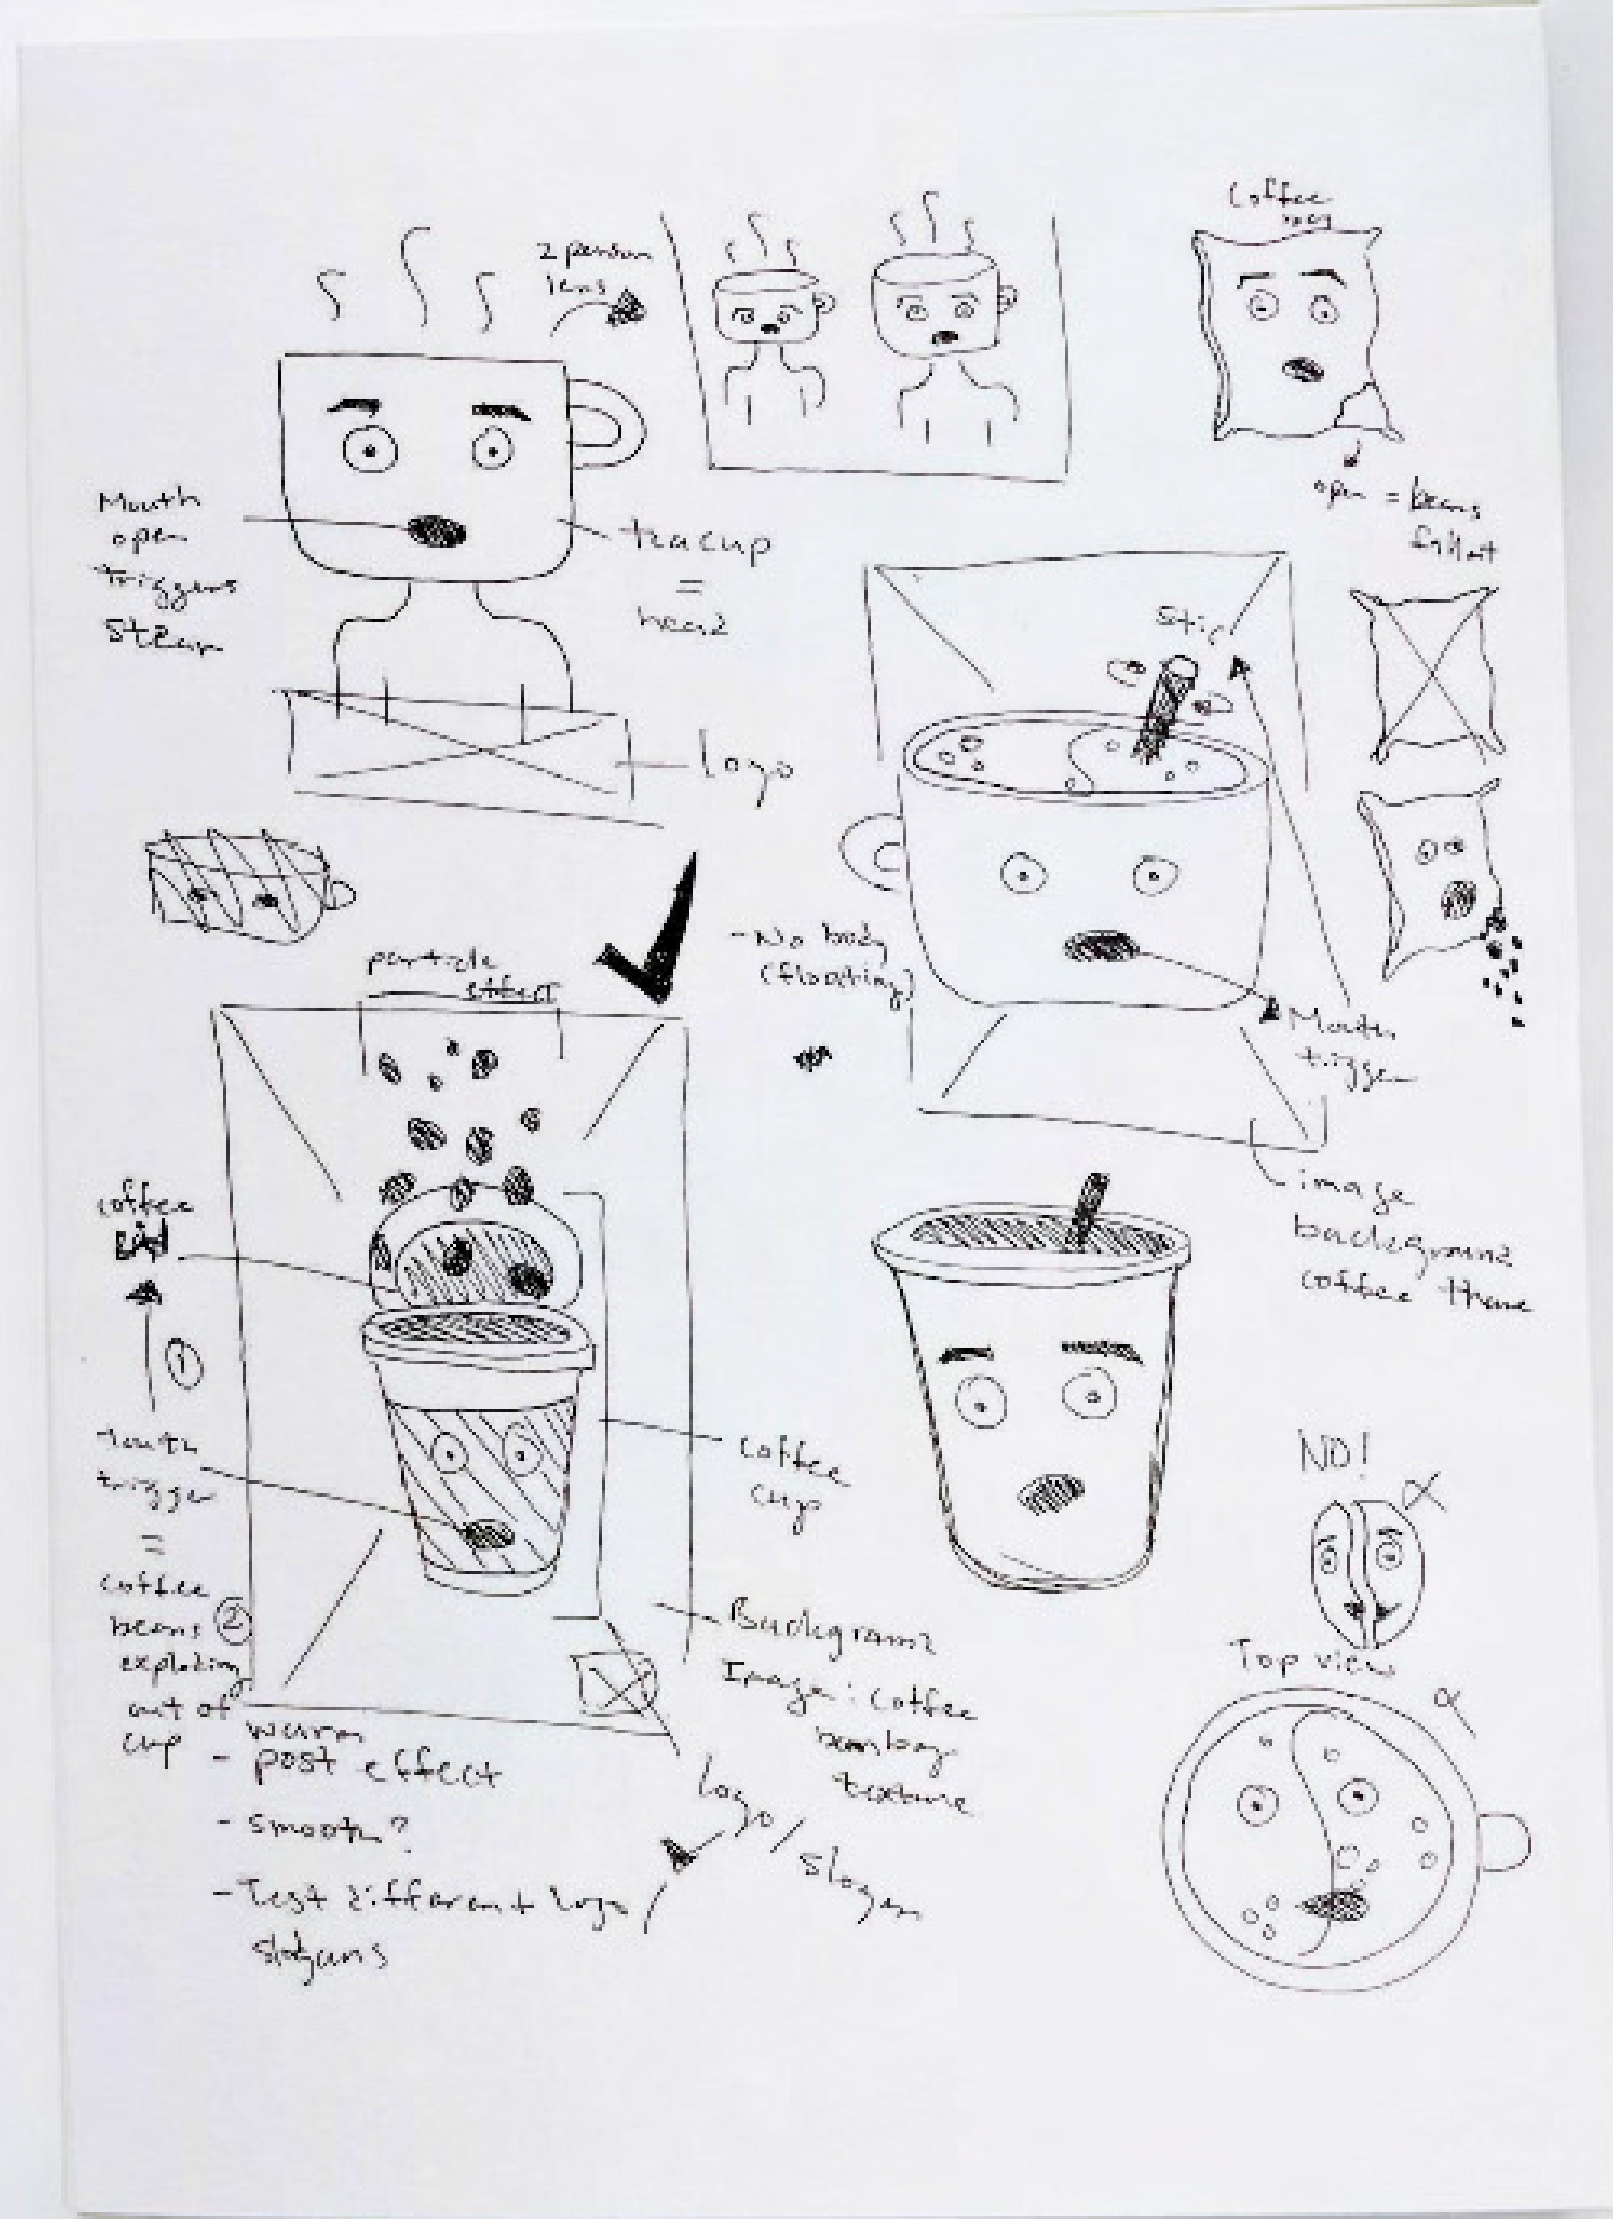 2 person
lens
Coffee
Mouth
open
triggers
steam
teacup
=
head
logo
open = beans
fall out
Stir
particle
effect
- No body
(floating)
Mouth
trigger
image
background
coffee theme
coffee
①
Mouth
trigger
=
coffee
beans ②
exploding
out of
cup
coffee
cup
Background
Image: Coffee
bean bag
texture
logo/slogan
warm
- post effect
- smooth?
- Test different logo
slogans
NO!
Top view